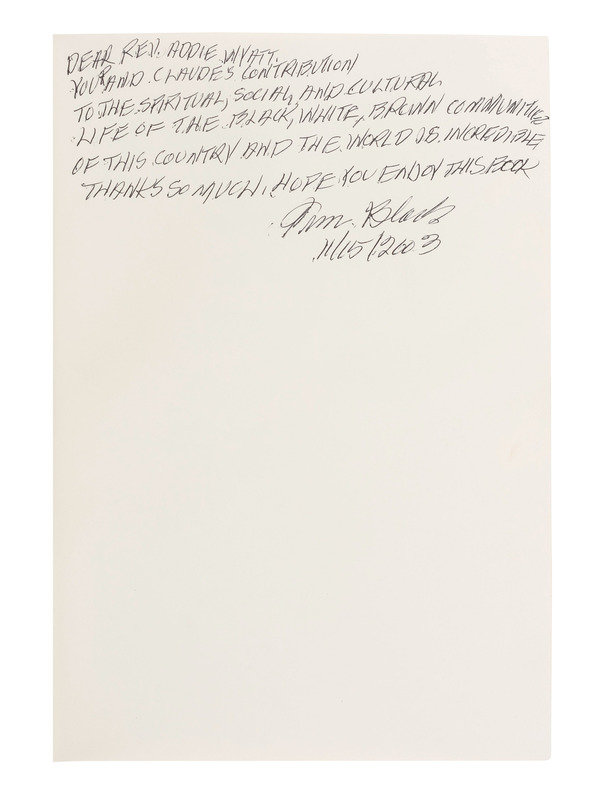 DEAR REV. ADDIE WYATT.
YOUR AND CLAUDE'S CONTRIBUTION
TO THE SPIRITUAL, SOCIAL, AND CULTURAL
LIFE OF THE BLACK, WHITE, BROWN COMMUNITIES
OF THIS COUNTRY AND THE WORLD IS INCREDIBLE,
THANKS SO MUCH, HOPE YOU ENJOY THIS BOOK
Tim. Black
11/15/2003